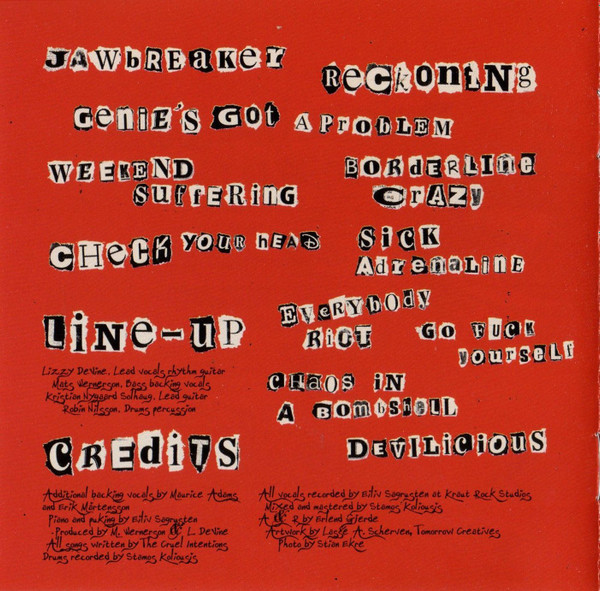 JAWBREAKER
RECKONING
GENIE'S GOT A PROBLEM
WEEKEND
SUFFERING
BORDERLINE
CRAZY
CHECK YOUR HEAD
SICK
ADRENALINE
EVERYBODY
RIOT
GO FUCK
YOURSELF
CHAOS IN
A BOMBSHELL
DEVILICIOUS
LINE-UP
Lizzy DeVine, Lead vocals rhythm guitar
Mats Wernerson, Bass backing vocals
Kristian Nygaard Solhaug, Lead guitar
Robin Nilsson, Drums percussion
CREDITS
Additional backing vocals by Maurice Adams
and Erik Mårtensson
Piano and puking by Eiliv Sagrusten
Produced by M. Wernerson & L. DeVine
All songs written by The Cruel Intentions
Drums recorded by Stamos Koliousis
All vocals recorded by Eiliv Sagrusten at Kraut Rock Studios
Mixed and mastered by Stamos Koliousis
A & R by Erlend Gjerde
Artwork by Lasse A. Scherven, Tomorrow Creatives
Photo by Stian Ekre